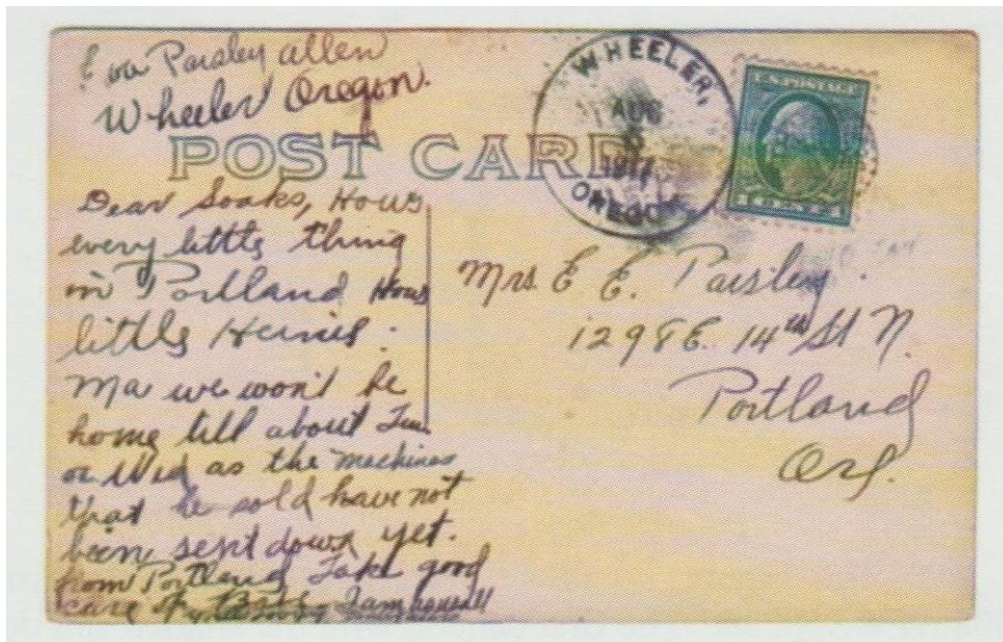 Eva Paisley Allen
Wheeler Oregon.
POST CARD
WHEELER,
AUG
1917
OREGON
U.S. POSTAGE
1 CENT 1
Dear Soaks, Hows
every little thing
in Portland Hows
little Heinie.
Ma we won't be
home till about Tue.
or Wed as the machines
that he sold have not
been sent down yet.
from Portland Take good
care of
Mrs. E E. Paisley.
1298 E. 14th St N.
Portland
Ore.